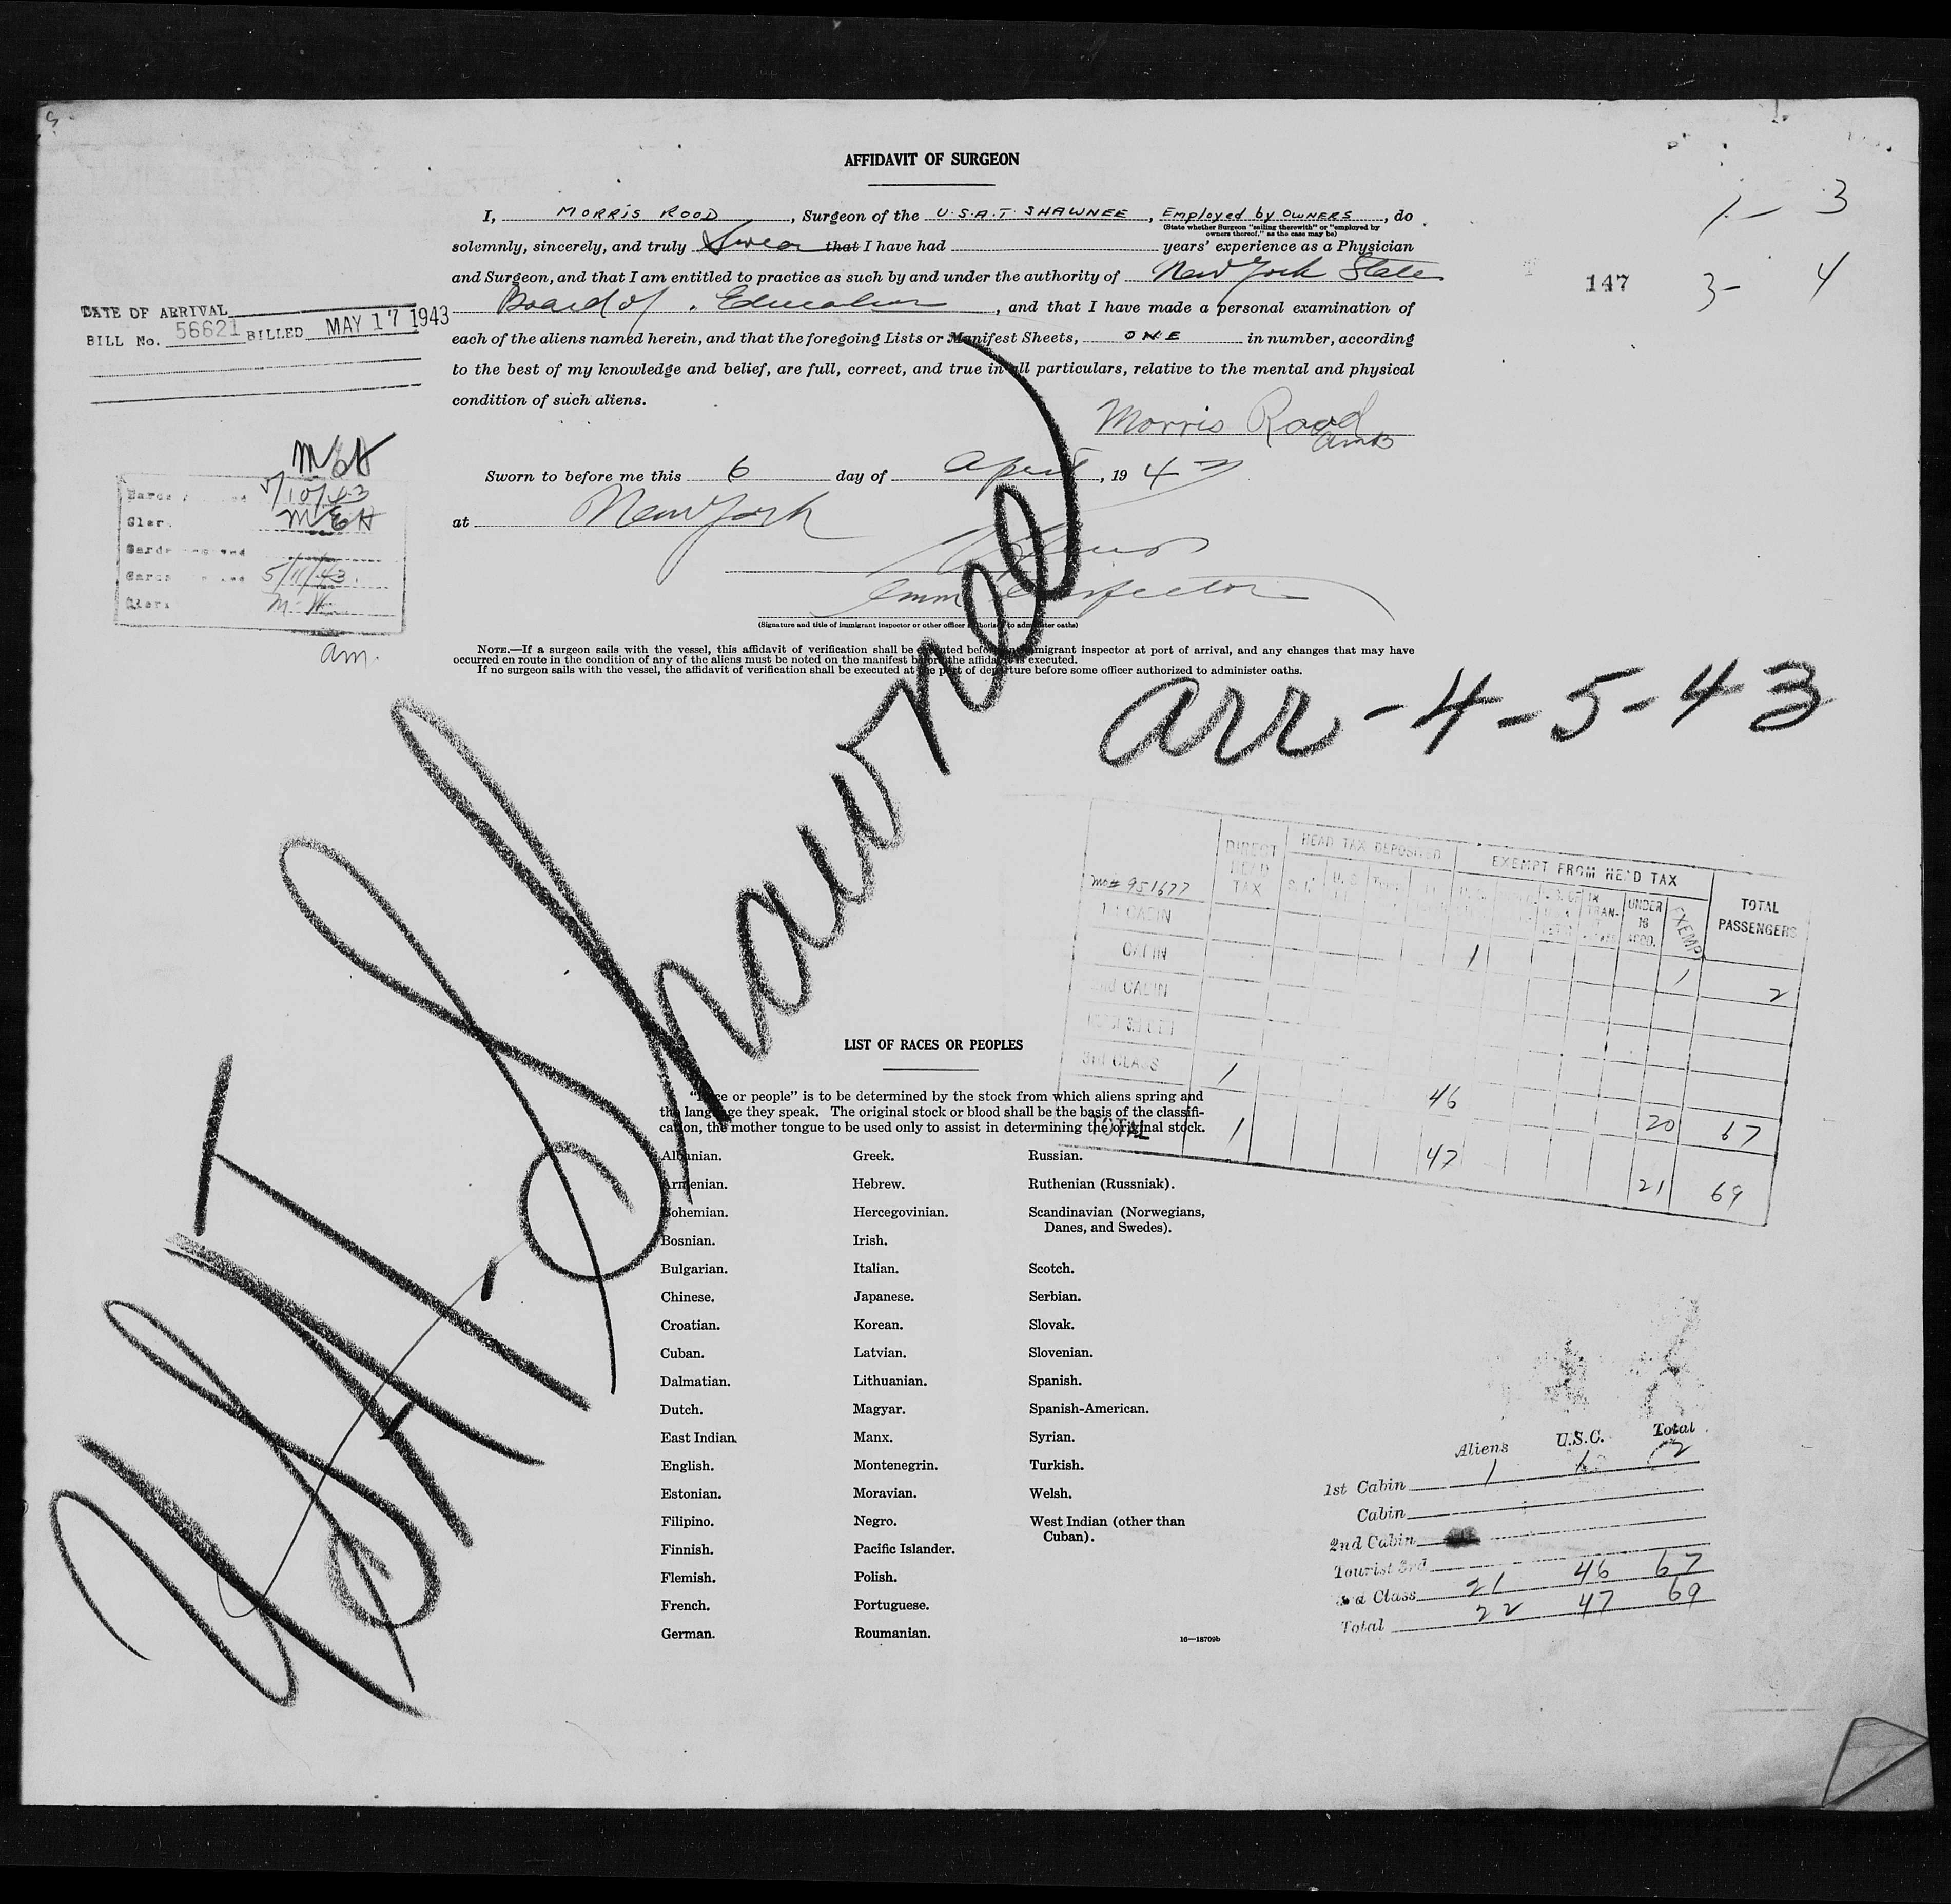 AFFIDAVIT OF SURGEON
I, MORRIS ROOD, Surgeon of the U.S.A.T. SHAWNEE, Employed by OWNERS, do
(State whether Surgeon "sailing therewith" or "employed by
owners thereof," as the case may be)
solemnly, sincerely, and truly Swear that I have had years' experience as a Physician
and Surgeon, and that I am entitled to practice as such by and under the authority of New York State
Board of . Education, and that I have made a personal examination of
each of the aliens named herein, and that the foregoing Lists or Manifest Sheets, ONE in number, according
to the best of my knowledge and belief, are full, correct, and true in all particulars, relative to the mental and physical
condition of such aliens.
Morris Rood
Sworn to before me this 6 day of April, 1943
at New York
Imm Inspector
(Signature and title of immigrant inspector or other officer authorized to administer oaths)
NOTE.—If a surgeon sails with the vessel, this affidavit of verification shall be executed before immigrant inspector at port of arrival, and any changes that may have
occurred en route in the condition of any of the aliens must be noted on the manifest before the affidavit is executed.
If no surgeon sails with the vessel, the affidavit of verification shall be executed at the port of departure before some officer authorized to administer oaths.
1- 3
147 3- 4
DATE OF ARRIVAL
BILL No. 56621 BILLED MAY 17 1943
MEH
5/11/43
am.
USAT-Shawnee
arr-4-5-43
DIRECT HEAD TAX
HEAD TAX DEPOSITED
EXEMPT FROM HEAD TAX
TOTAL PASSENGERS
UNDER 16 ACCD.
EXEMP
mo# 951677
1st CABIN 1 1 2
CABIN
2nd CABIN
3rd CLASS 1 46 20 67
TOTAL 1 47 21 69
LIST OF RACES OR PEOPLES
"Race or people" is to be determined by the stock from which aliens spring and
the language they speak. The original stock or blood shall be the basis of the classifi-
cation, the mother tongue to be used only to assist in determining the original stock.
Albanian. Greek. Russian.
Armenian. Hebrew. Ruthenian (Russniak).
Bohemian. Hercegovinian. Scandinavian (Norwegians,
Danes, and Swedes).
Bosnian. Irish.
Bulgarian. Italian. Scotch.
Chinese. Japanese. Serbian.
Croatian. Korean. Slovak.
Cuban. Latvian. Slovenian.
Dalmatian. Lithuanian. Spanish.
Dutch. Magyar. Spanish-American.
East Indian. Manx. Syrian.
English. Montenegrin. Turkish.
Estonian. Moravian. Welsh.
Filipino. Negro. West Indian (other than
Cuban).
Finnish. Pacific Islander.
Flemish. Polish.
French. Portuguese.
German. Roumanian.
16—18709b
Aliens U.S.C. Total
1st Cabin 1 1 2
Cabin
2nd Cabin
Tourist 3rd
3rd Class 21 46 67
Total 22 47 69